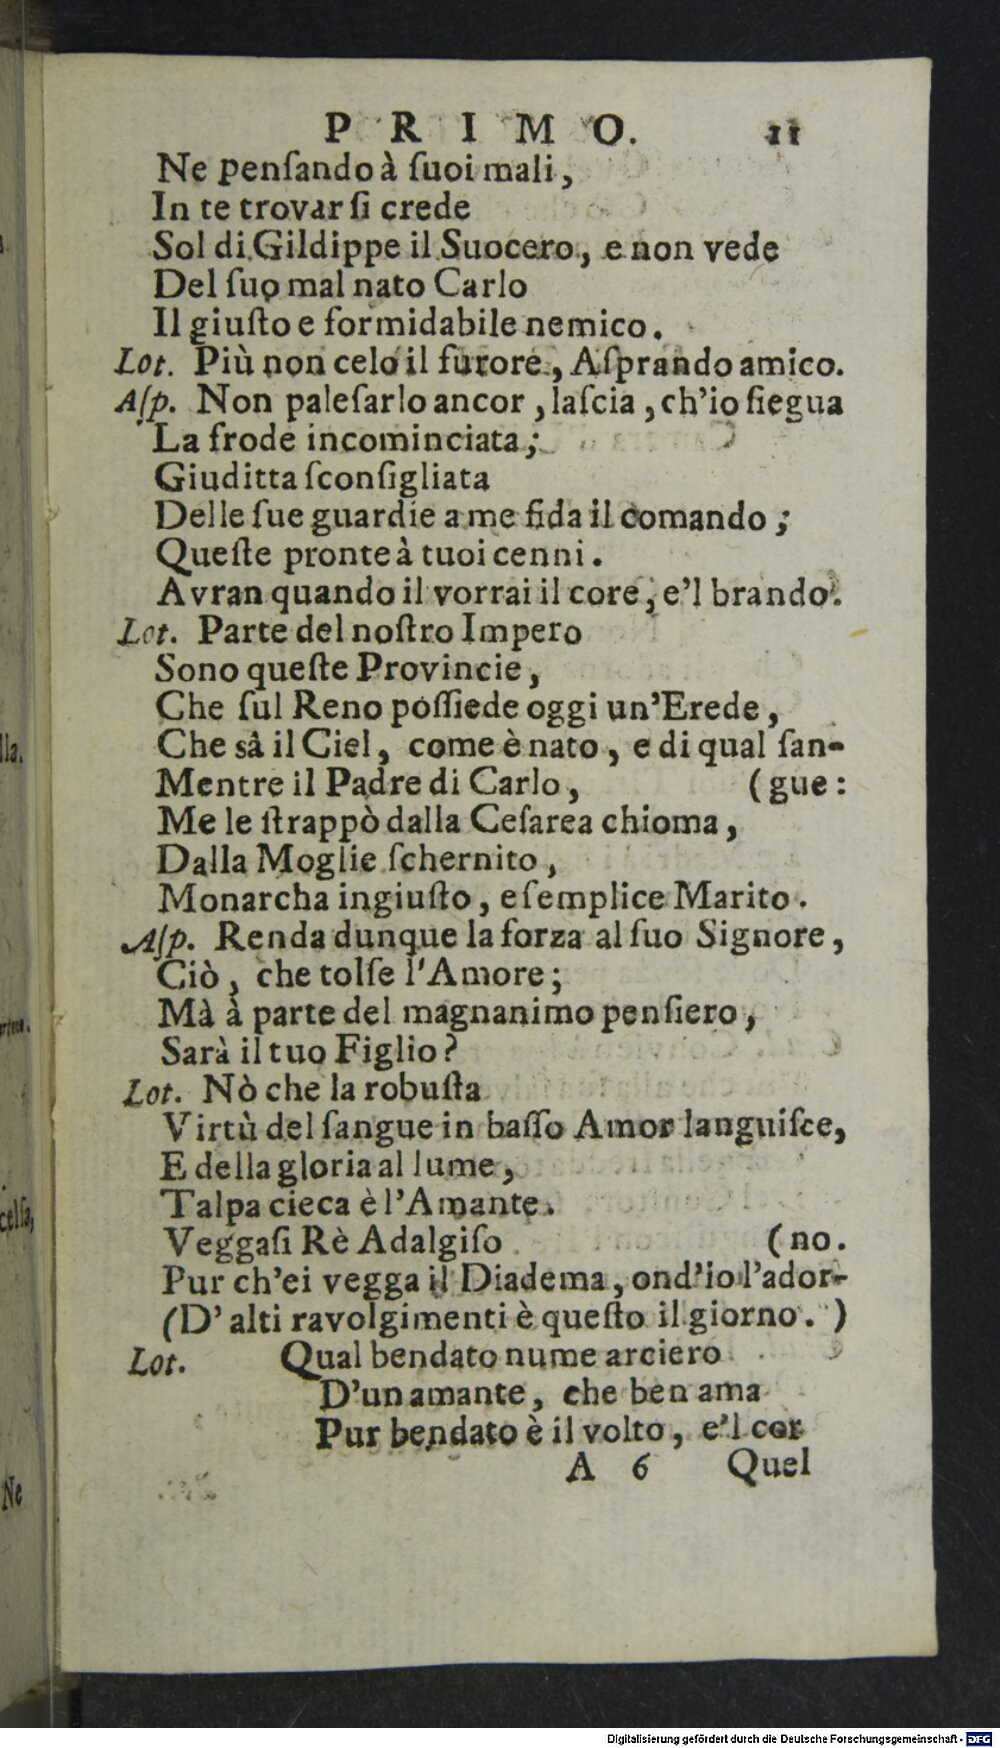 PRIMO. 11
Ne penſando à ſuoi mali,
In te trovar ſi crede
Sol di Gildippe il Suocero, e non vede
Del ſuo mal nato Carlo
Il giuſto e formidabile nemico.
Lot. Più non celo il furore, Aſprando amico.
Aſp. Non paleſarlo ancor, laſcia, ch'io ſiegua
La frode incominciata;
Giuditta ſconſigliata
Delle ſue guardie a me fida il comando;
Queſte pronte à tuoi cenni.
Avran quando il vorrai il core, e'l brando.
Lot. Parte del noſtro Impero
Sono queſte Provincie,
Che ſul Reno poſſiede oggi un'Erede,
Che sà il Ciel, come è nato, e di qual ſan-
Mentre il Padre di Carlo, (gue:
Me le ſtrappò dalla Ceſarea chioma,
Dalla Moglie ſchernito,
Monarcha ingiuſto, e ſemplice Marito.
Aſp. Renda dunque la forza al ſuo Signore,
Ciò, che tolſe l'Amore;
Mà à parte del magnanimo penſiero,
Sarà il tuo Figlio?
Lot. Nò che la robuſta
Virtù del ſangue in baſſo Amor languiſce,
E della gloria al lume,
Talpa cieca è l'Amante.
Veggaſi Rè Adalgiſo (no.
Pur ch'ei vegga il Diadema, ond'io l'ador-
(D'alti ravolgimenti è queſto il giorno.)
Lot. Qual bendato nume arciero
D'un amante, che ben ama
Pur bendato è il volto, e'l cor
A 6 Quel
lla.
celſa,
Ne
Digitalisierung gefördert durch die Deutsche Forschungsgemeinschaft - DFG